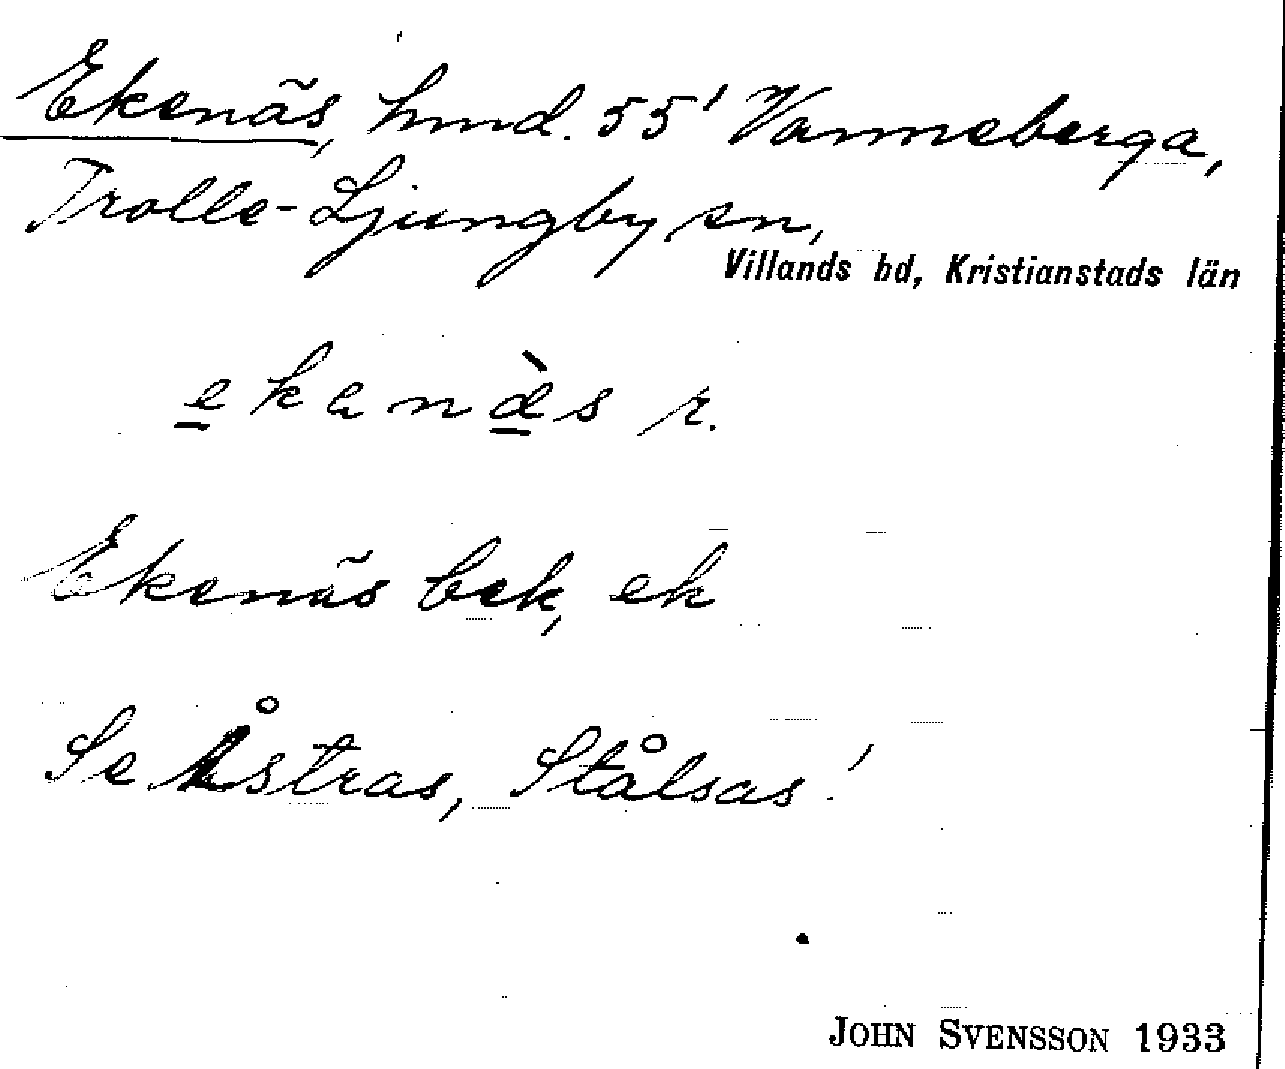 Ekenäs, hmd. 55' Vanneberga,
Trolle-Ljungby sn,
Villands hd, Kristianstads län
ekanäs r.
Ekenäs bek, ek
Se Åstras, Stålsas!
JOHN SVENSSON 1933